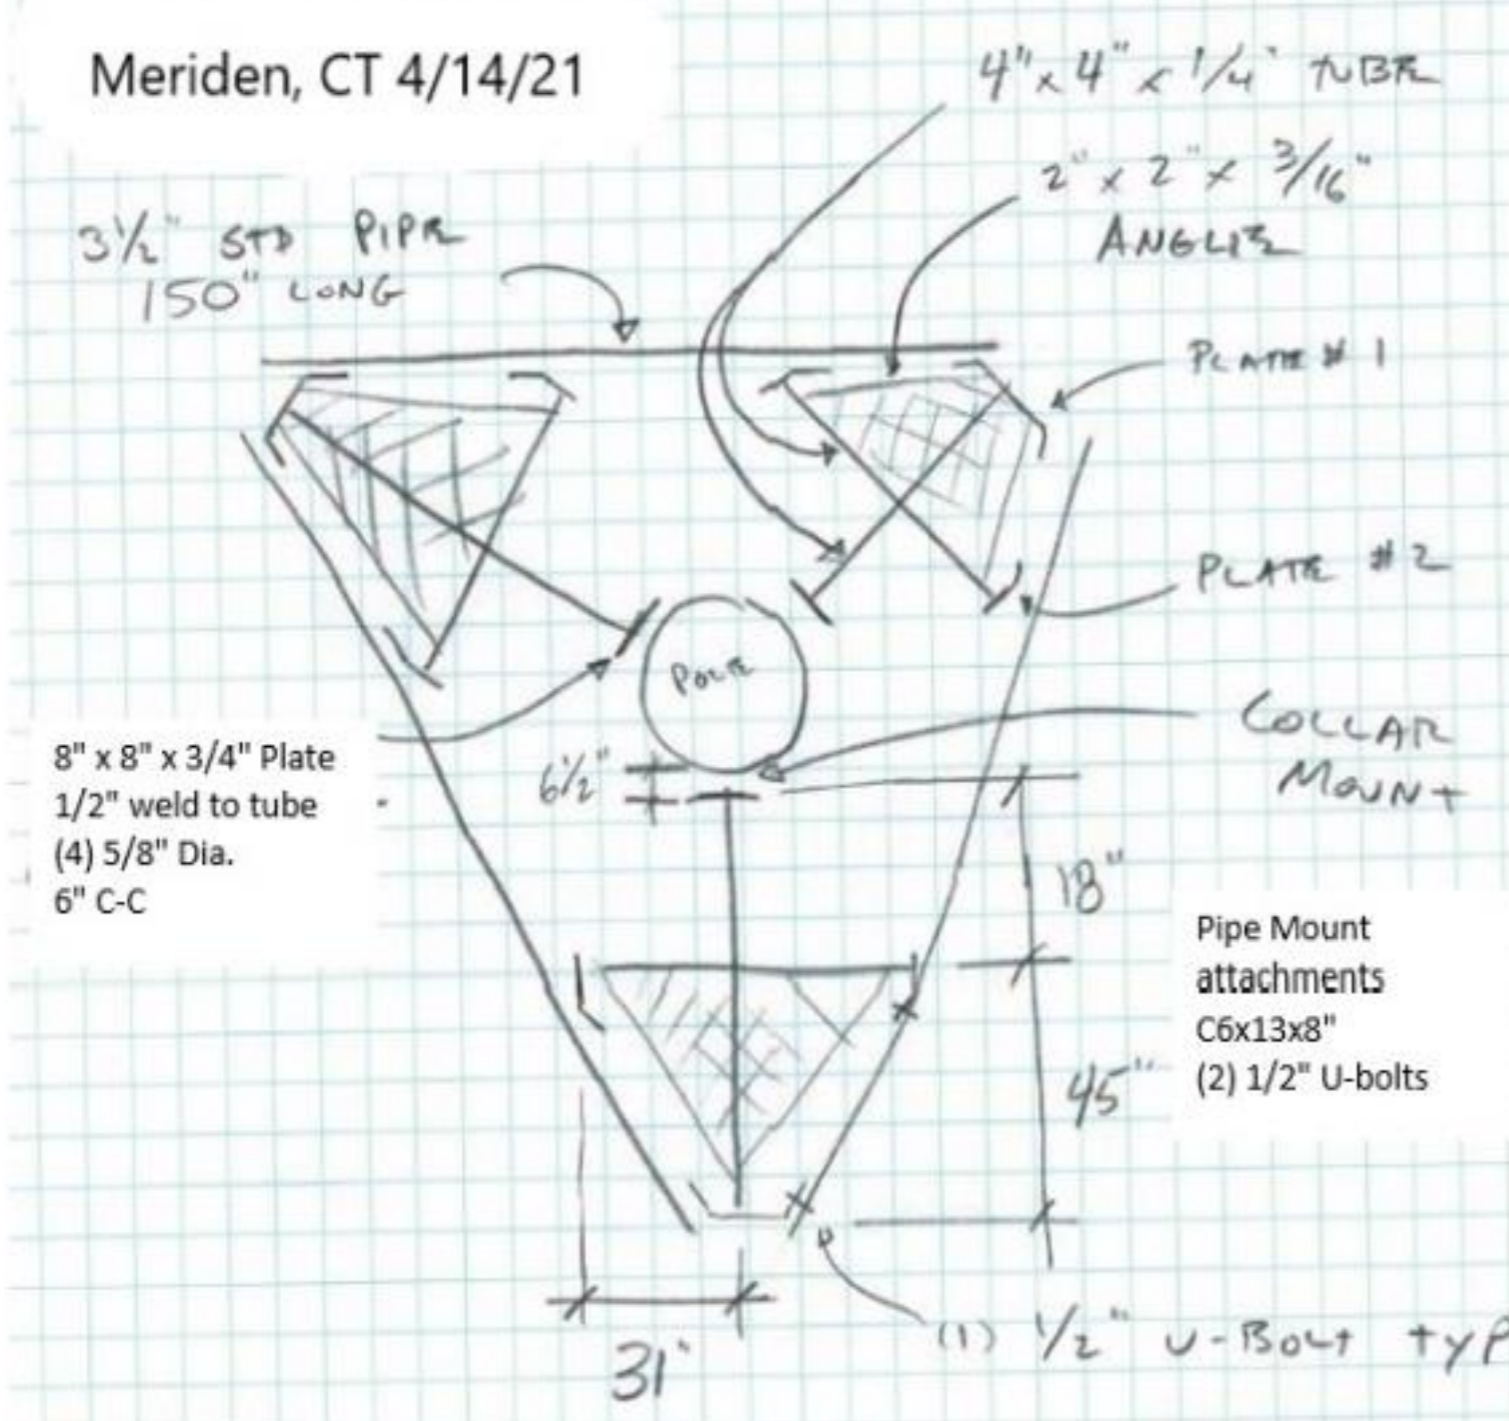 Meriden, CT 4/14/21
4" x 4" x 1/4" TUBE
2" x 2" x 3/16"
ANGLE
3 1/2" STD PIPE
150" LONG
PLATE # 1
PLATE # 2
POLE
COLLAR
MOUNT
8" x 8" x 3/4" Plate
1/2" weld to tube
(4) 5/8" Dia.
6" C-C
6 1/2"
18"
Pipe Mount
attachments
C6x13x8"
(2) 1/2" U-bolts
45"
(1) 1/2" U-Bolt typ
31"